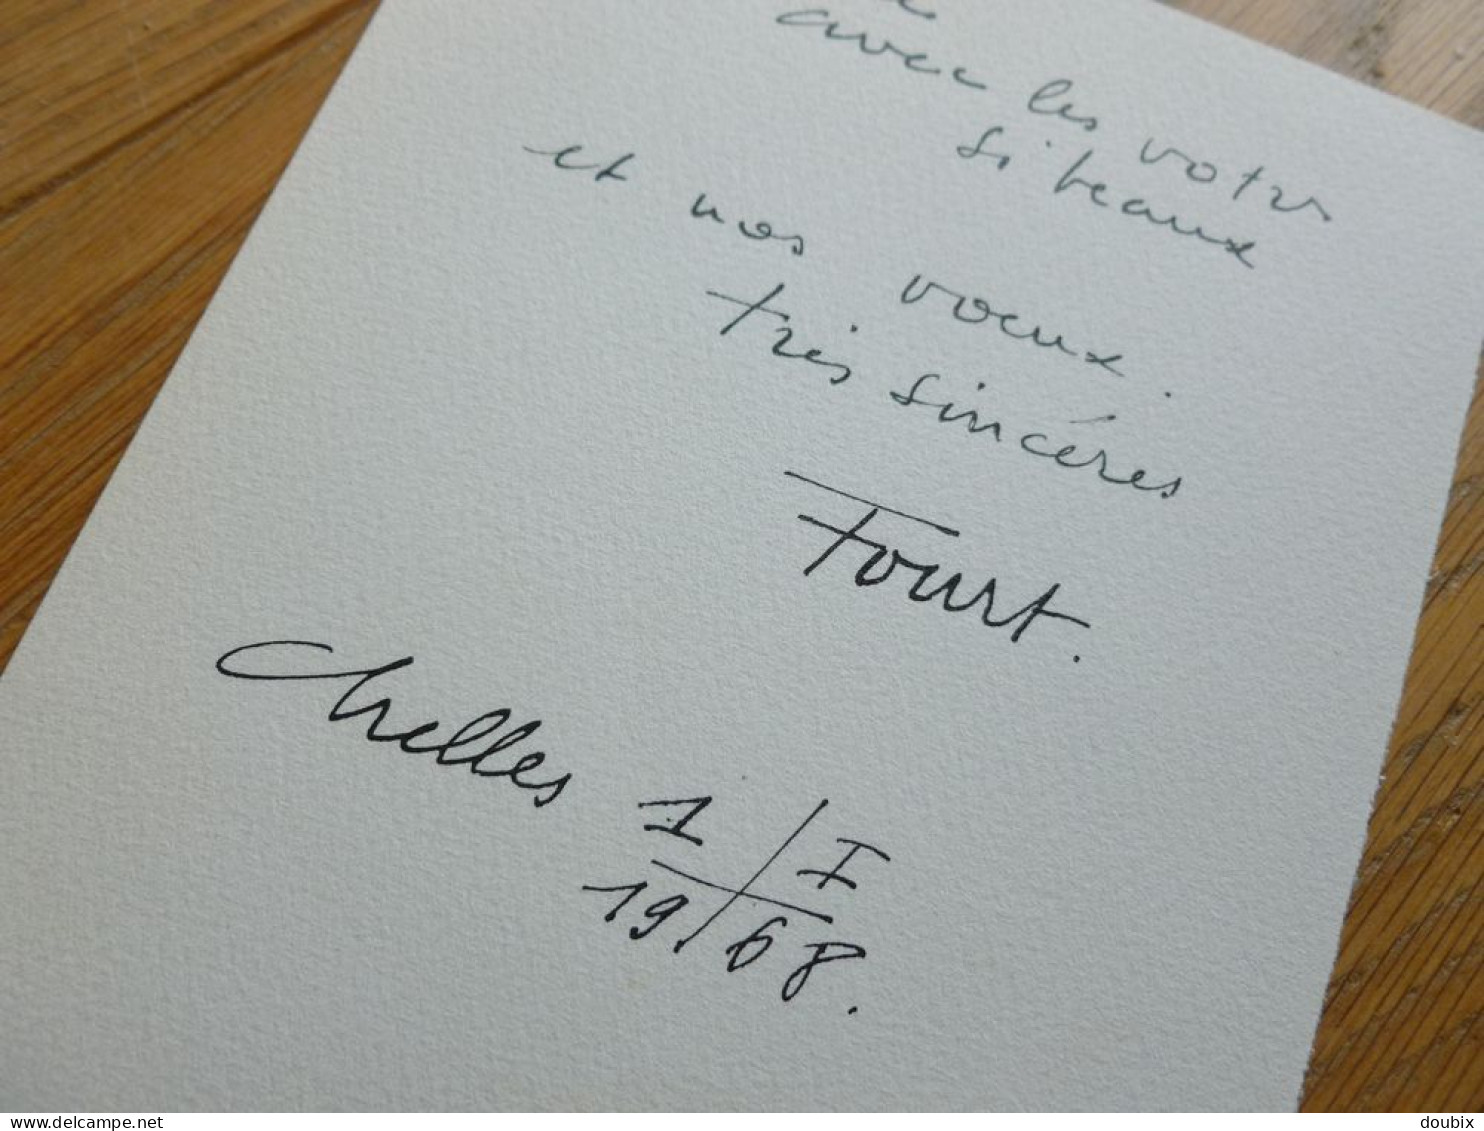 avec les votres
si beaux
et nos voeux.
très sincéres
Fourt.
Chelles 1/I
19.68.
www.delcampe.net
doubix